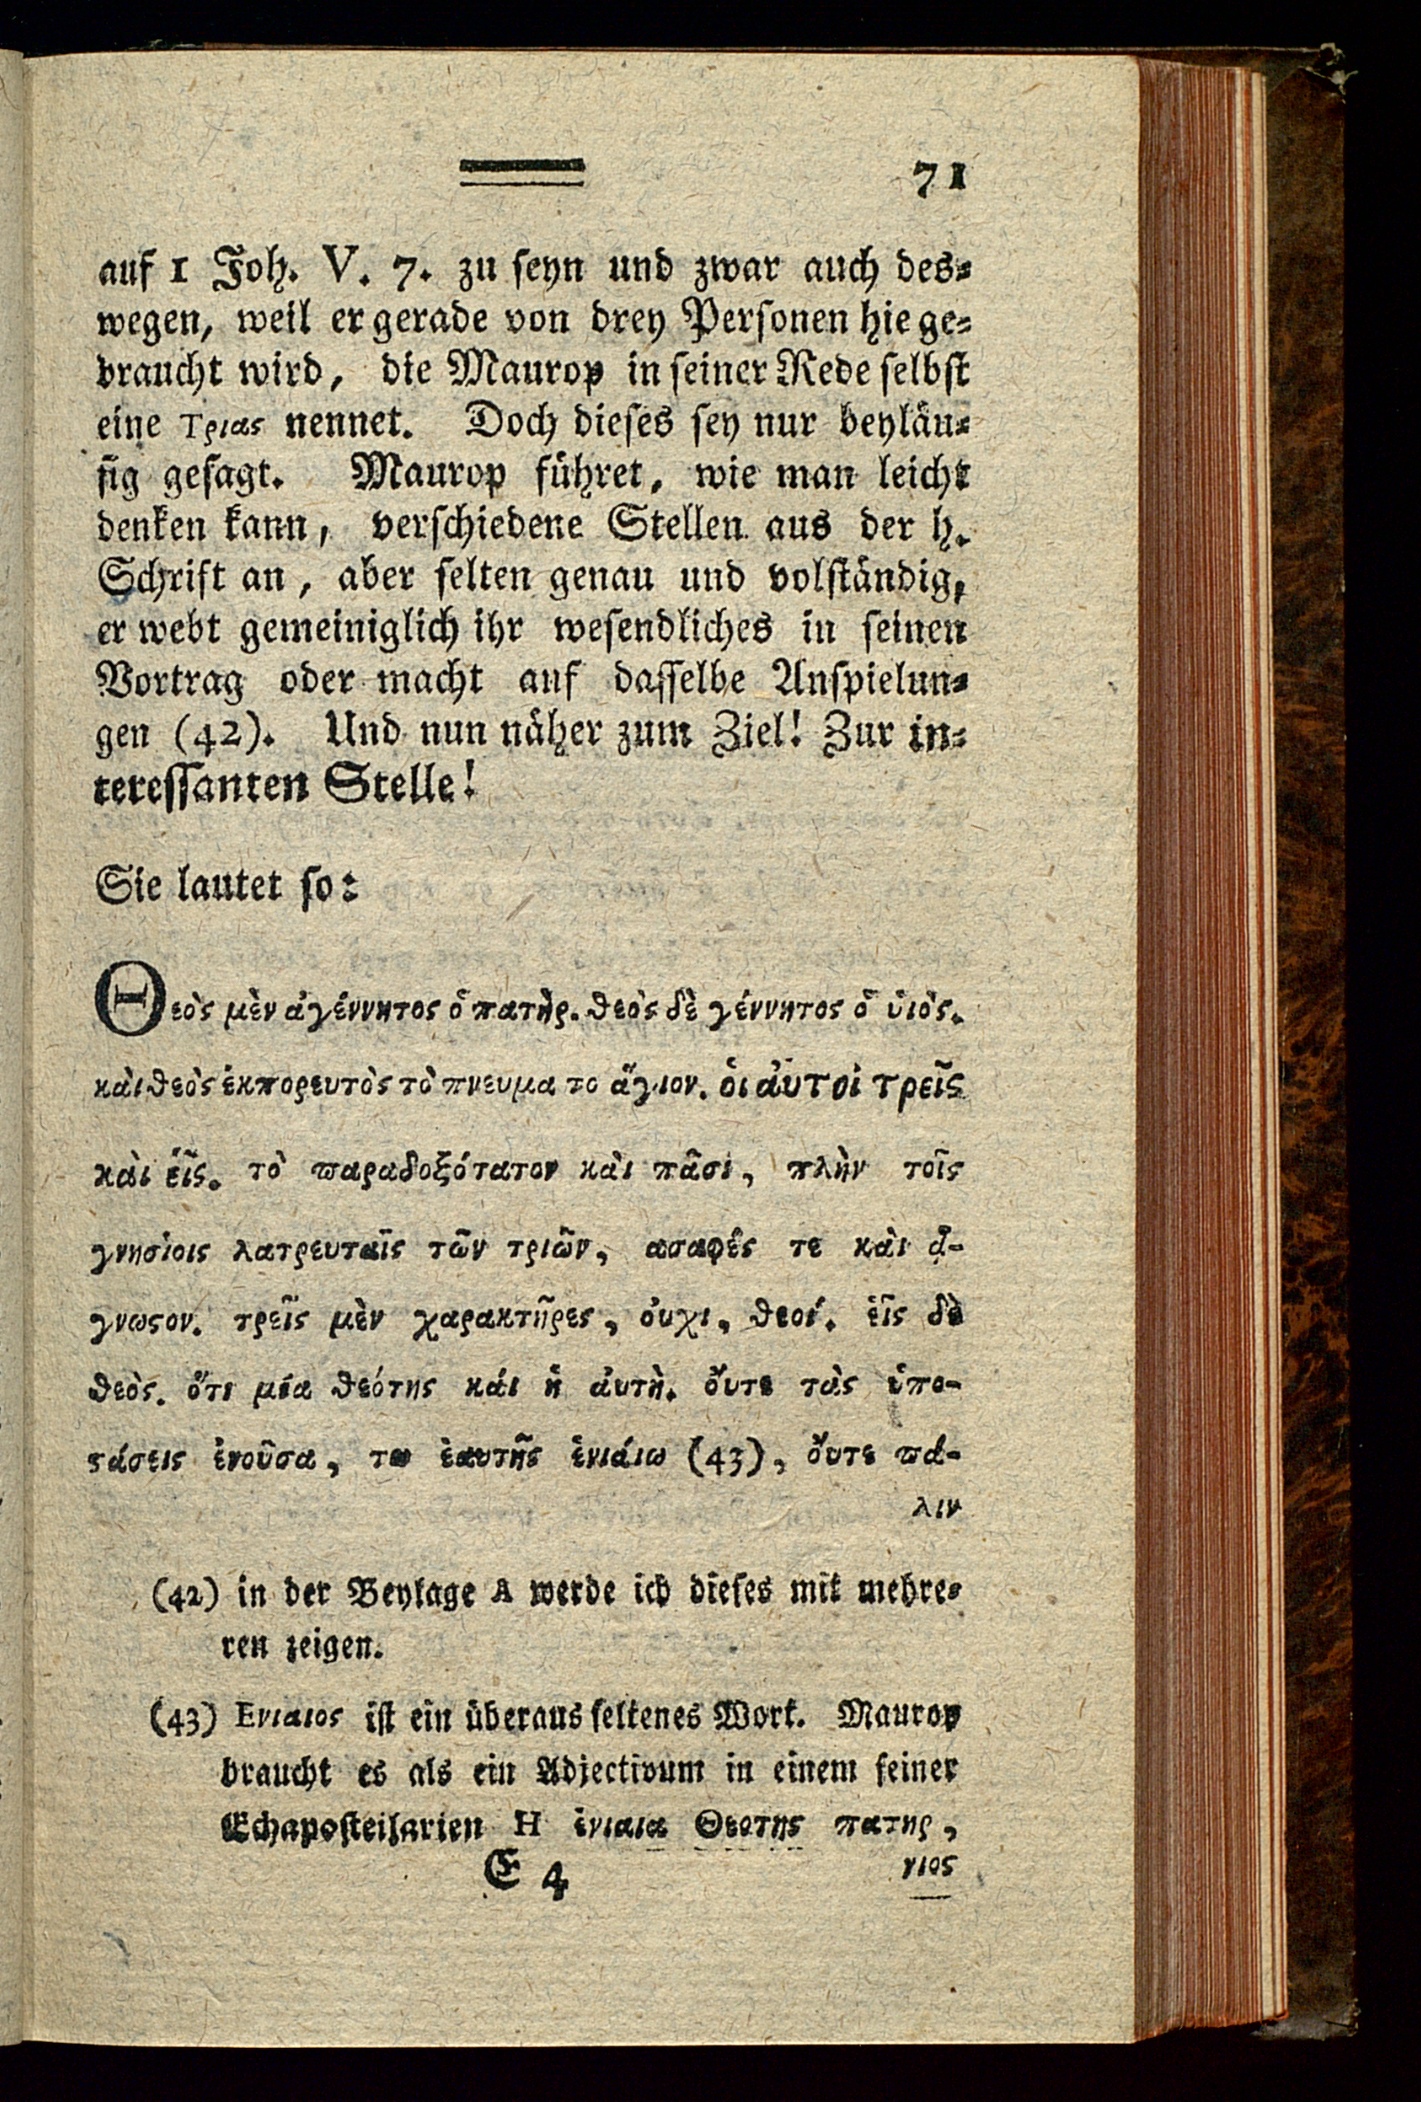 71
auf 1 Joh. V. 7. zu seyn und zwar auch des-
wegen, weil er gerade von drey Personen hie ge-
braucht wird, die Maurop in seiner Rede selbst
eine Τριας nennet. Doch dieses sey nur beyläu-
fig gesagt. Maurop führet, wie man leicht
denken kann, verschiedene Stellen aus der h.
Schrift an, aber selten genau und volständig,
er webt gemeiniglich ihr wesendliches in seinen
Vortrag oder macht auf dasselbe Anspielun-
gen (42). Und nun näher zum Ziel! Zur in-
teressanten Stelle!
Sie lautet so:
Θεὸς μὲν ἀγέννητος ὁ πατὴρ. θεὸς δὲ γέννητος ὁ ὑιὸς.
κὰι θεὸς ἐκπορευτὸς τὸ πνευμα το ἅγιον. ὁι ἀυτοὶ τρεῖς
κὰι ἑῖς. τὸ παραδοξότατον κὰι πᾶσι, πλὴν τοῖς
γνησίοις λατρευταῖς τῶν τριῶν, ασαφές τε κὰι ἄ-
γνωϛον. τρεῖς μὲν χαρακτῆρες, ὀυχι, θεοί. ἑῖς δὲ
θεὸς. ὅτι μία θεότης κάι ἡ ἀυτὴ. ὄυτε τὰς ὑπο-
ϛάσεις ἑνοῦσα, τω ἑαυτῆς ἑνιάιω (43), ὄυτε πά-
λιν
(42) in der Beylage A werde ich dieses mit mehre-
ren zeigen.
(43) Ενιαιος ist ein überaus seltenes Wort. Maurop
braucht es als ein Adjectivum in einem seiner
Echaposteilarien Η ἑνιαια Θεοτης πατηρ,
E 4 υιος